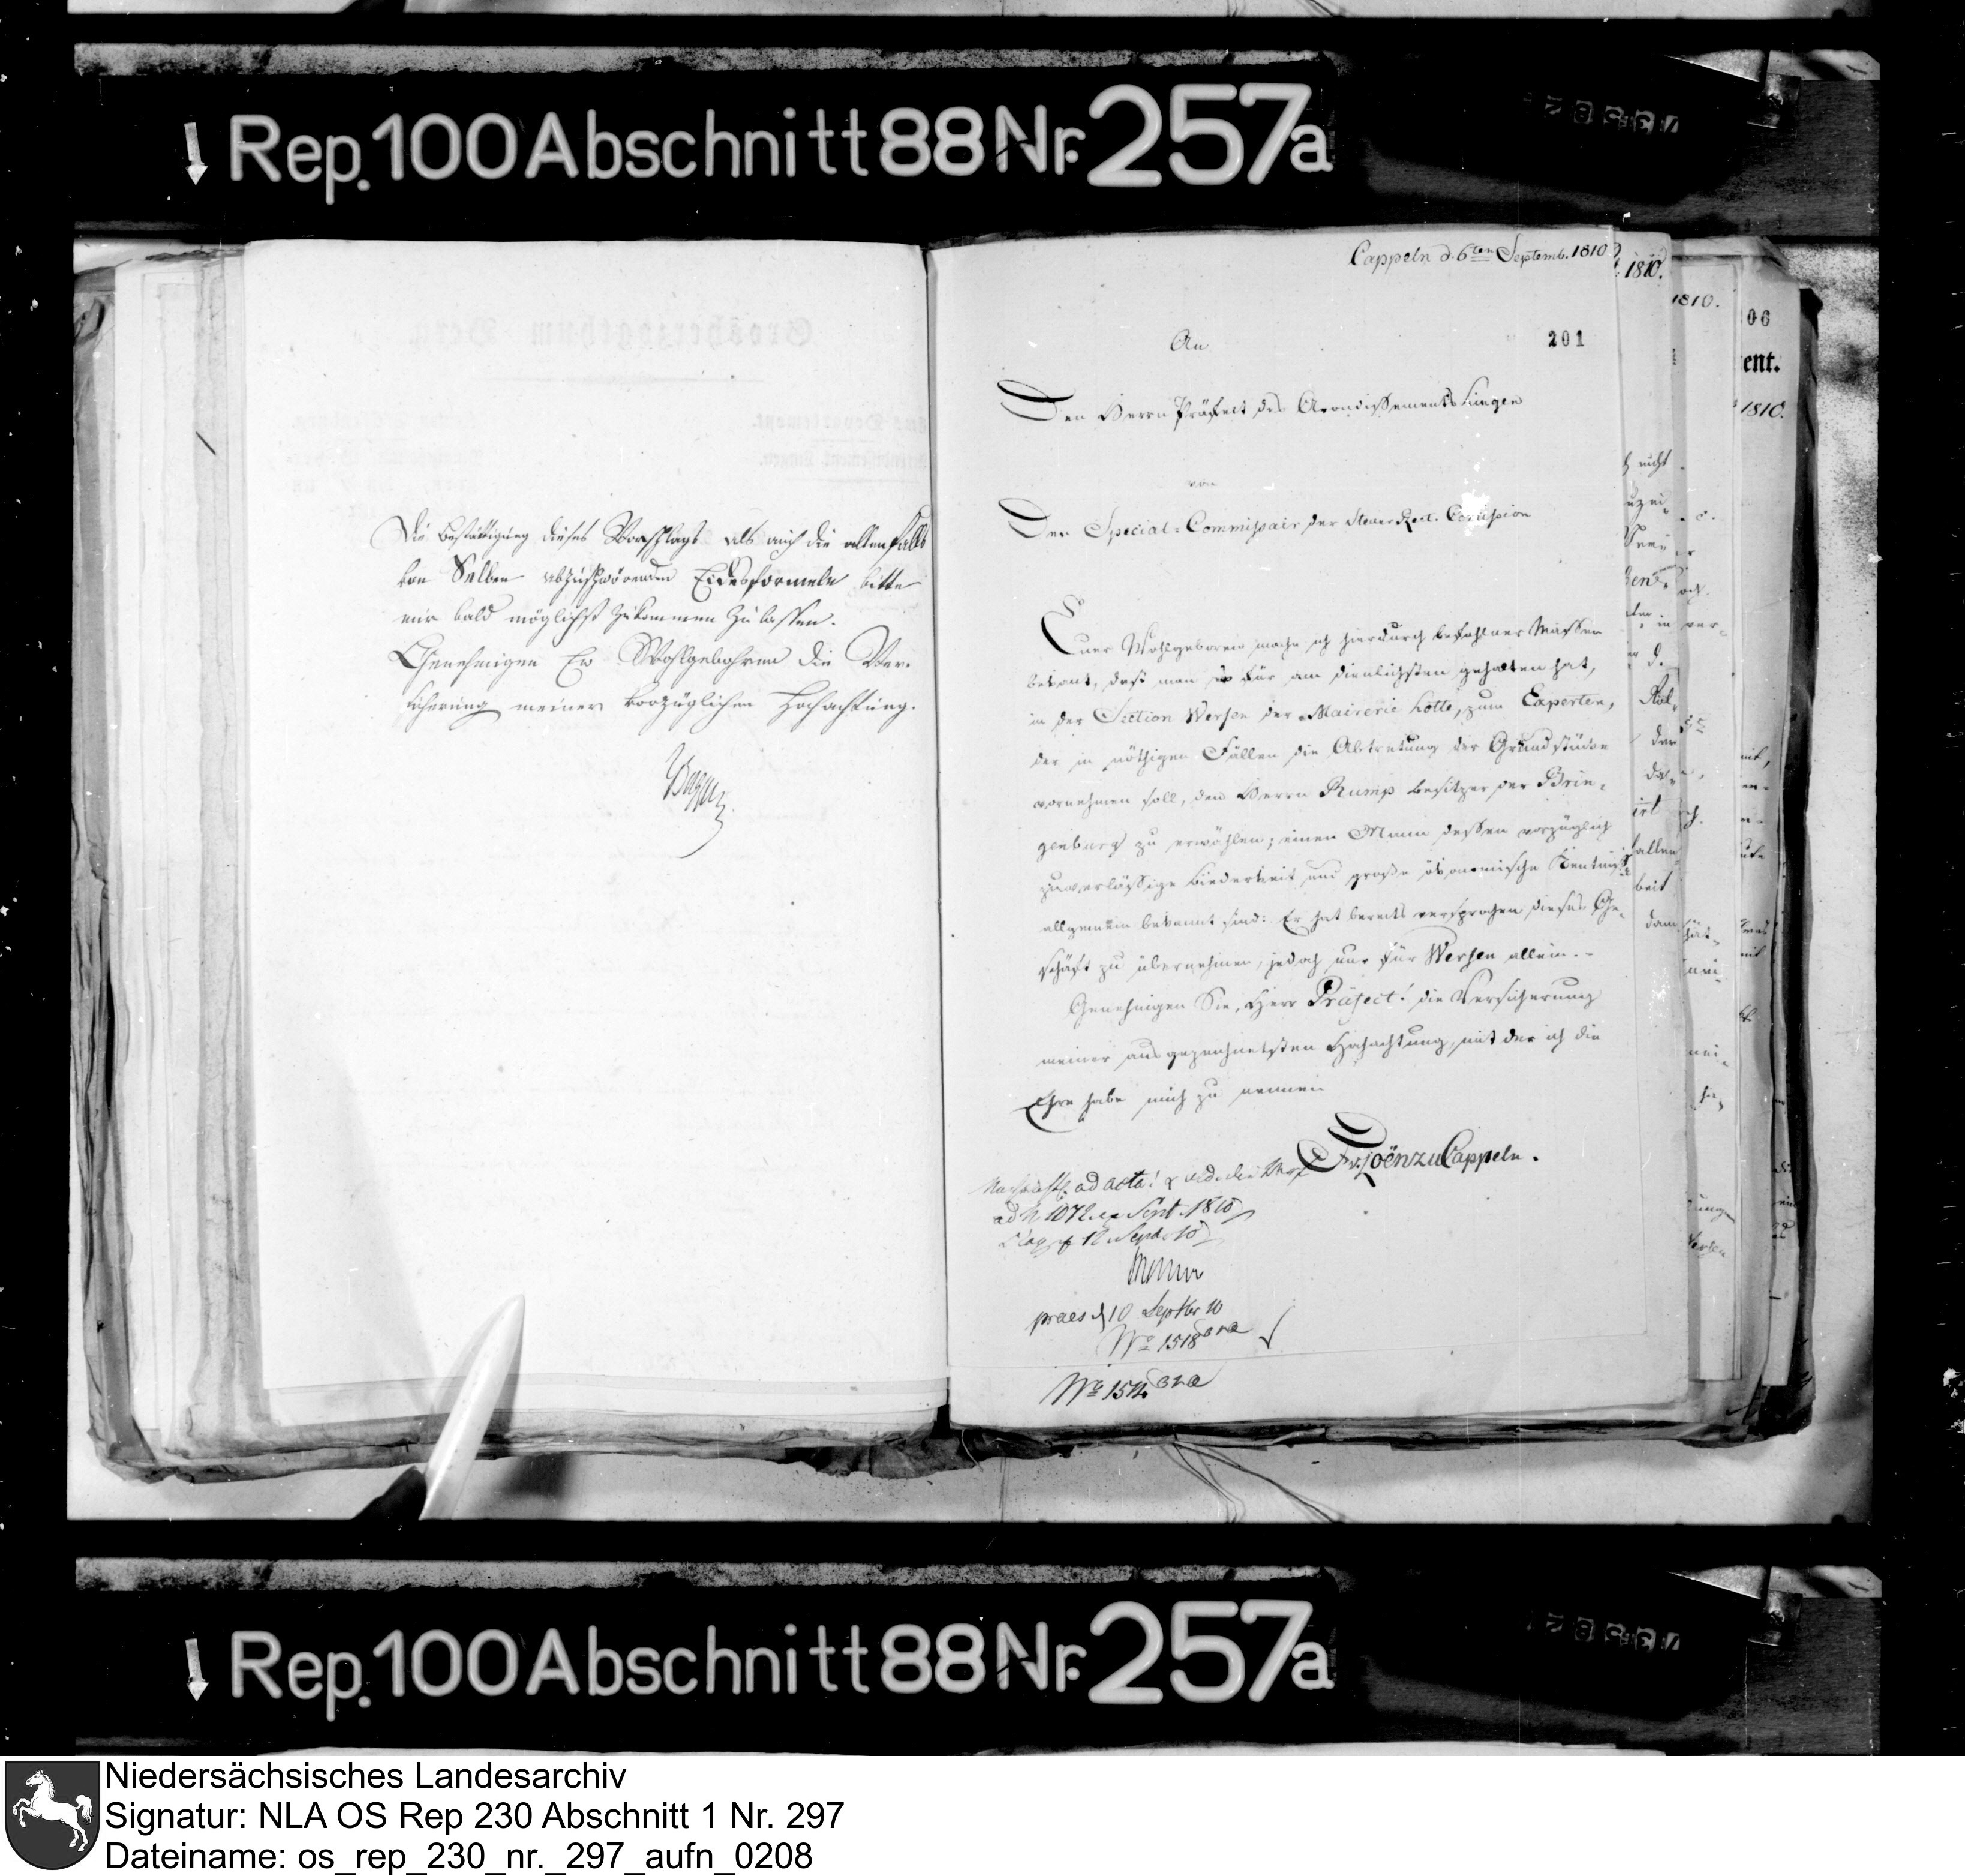 Rep. 100 Abschnitt 88 Nr. 257a
Die Bestättigung dieses Vorschlags als auch die allenfalls
von Selben abzuschwörenden Eidesformeln bitte
mir bald möglichst zukommen zu lassen.
Genehmigen Ew Wohlgebohren die Ver-
sicherung meiner vorzüglichen Hochachtung.
Cappeln d. 6ten Septemb. 1810
201
An
Den Herrn Präfect des Arondissements Lingen
von
Den Special-Commissair der Steuer Rect. Comission
Euer Wohlgeboren mache ich hierdurch befohlner Massen
bekant, dass man es für am dienlichsten gehalten hat,
in der Section Wersen der Mairerie Lotte, zum Experten,
der in nöthigen Fällen die Abtretung der Grundstücke
vornehmen soll, den Herrn Rump Besitzer der Brin-
genburg zu erwählen; einen Mann dessen vorzüglich
zuverlässige Biederkeit und große ökonomische Kentniss
allgemein bekannt sind: Er hat bereits versprochen dieses Ge-
schäft zu übernehmen, jedoch nur für Wersen allein.-
Genehmigen Sie, Herr Präfect! die Versicherung
meiner ausgezeichnetsten Hochachtung, mit der ich die
Ehre habe mich zu nennen
F. v. Loën zu Cappeln.
ad acta!
ad N 1072 Sept. 1810
12 Sept. 10
praes d 10 Septbr 10
No 1518
No 1512
1810.
1810.
06
ent.
1810.
Rep. 100 Abschnitt 88 Nr. 257a
Niedersächsisches Landesarchiv
Signatur: NLA OS Rep 230 Abschnitt 1 Nr. 297
Dateiname: os_rep_230_nr._297_aufn_0208